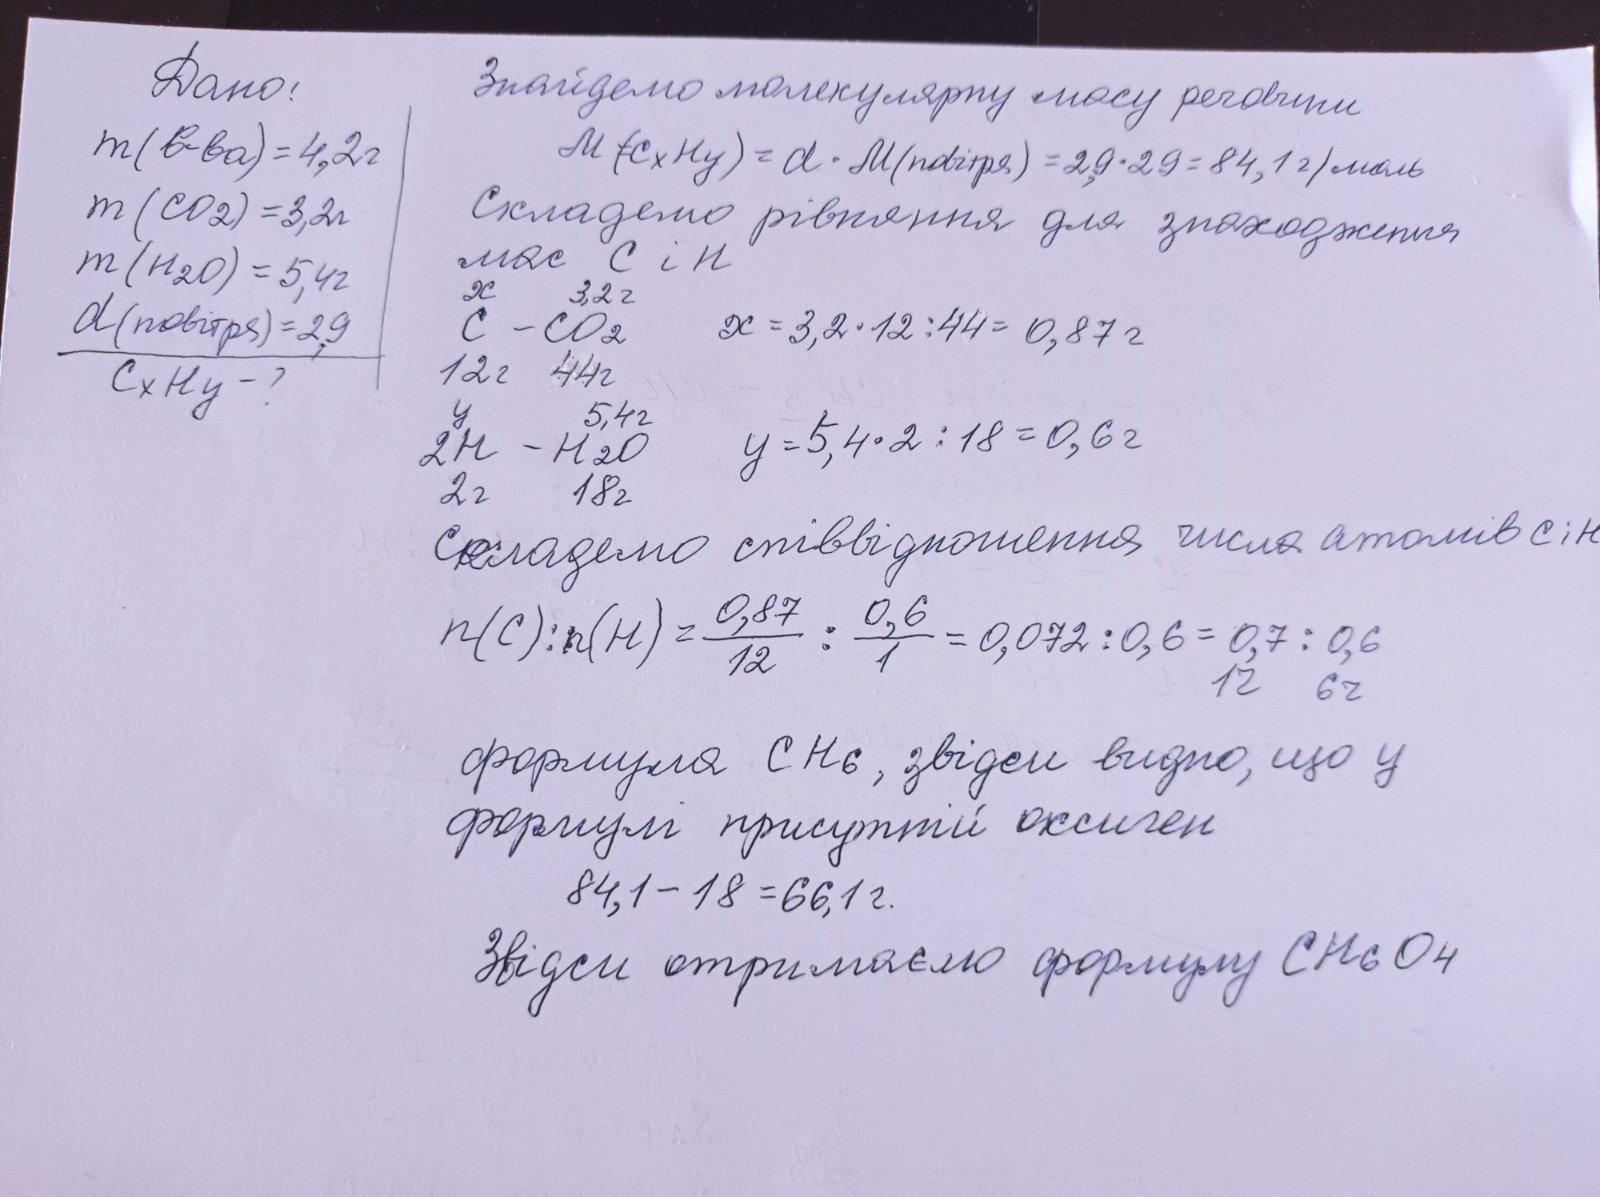 Дано:
m(в-ва)=4,2г
m(CO2)=3,2г
m(H2O)=5,4г
d(повітря)=2,9
CxHy-?
Знайдемо молекулярну масу речовини
M(CxHy)=d·M(повітря)=2,9·29=84,1г/моль
Складемо рівняння для знаходження
мас C і H
x 3,2г
C - CO2 x=3,2·12:44=0,87г
12г 44г
y 5,4г
2H - H2O y=5,4·2:18=0,6г
2г 18г
Складемо співвідношення числа атомів C і H
n(C):n(H)=0,87/12:0,6/1=0,072:0,6=0,7:0,6
1г 6г
формула CH6, звідси видно, що у
формулі присутній оксиген
84,1-18=66,1г.
Звідси отримаємо формулу CH6O4